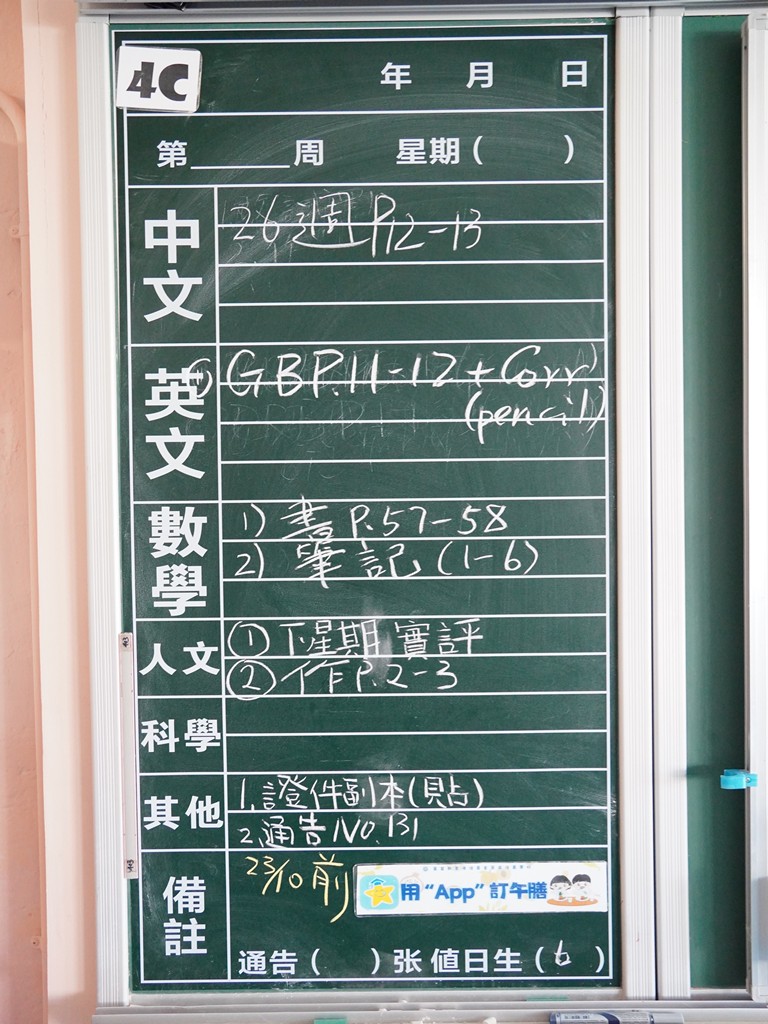 4C
年 月 日
第______周 星期( )
中文
26週 P12-13
英文
① GB P.11-12 + Corr
(pencil)
數學
1) 書 P.57-58
2) 筆記 (1-6)
人文
① 下星期實評
② 作 P.2-3
科學
其他
1. 證件副本(貼)
2. 通告 NO.131
備註
23/10前
用“App”訂午膳
通告( )张 值日生(6)